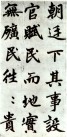 朝廷下其事設
官賦民而地實
無礦民往〻貴